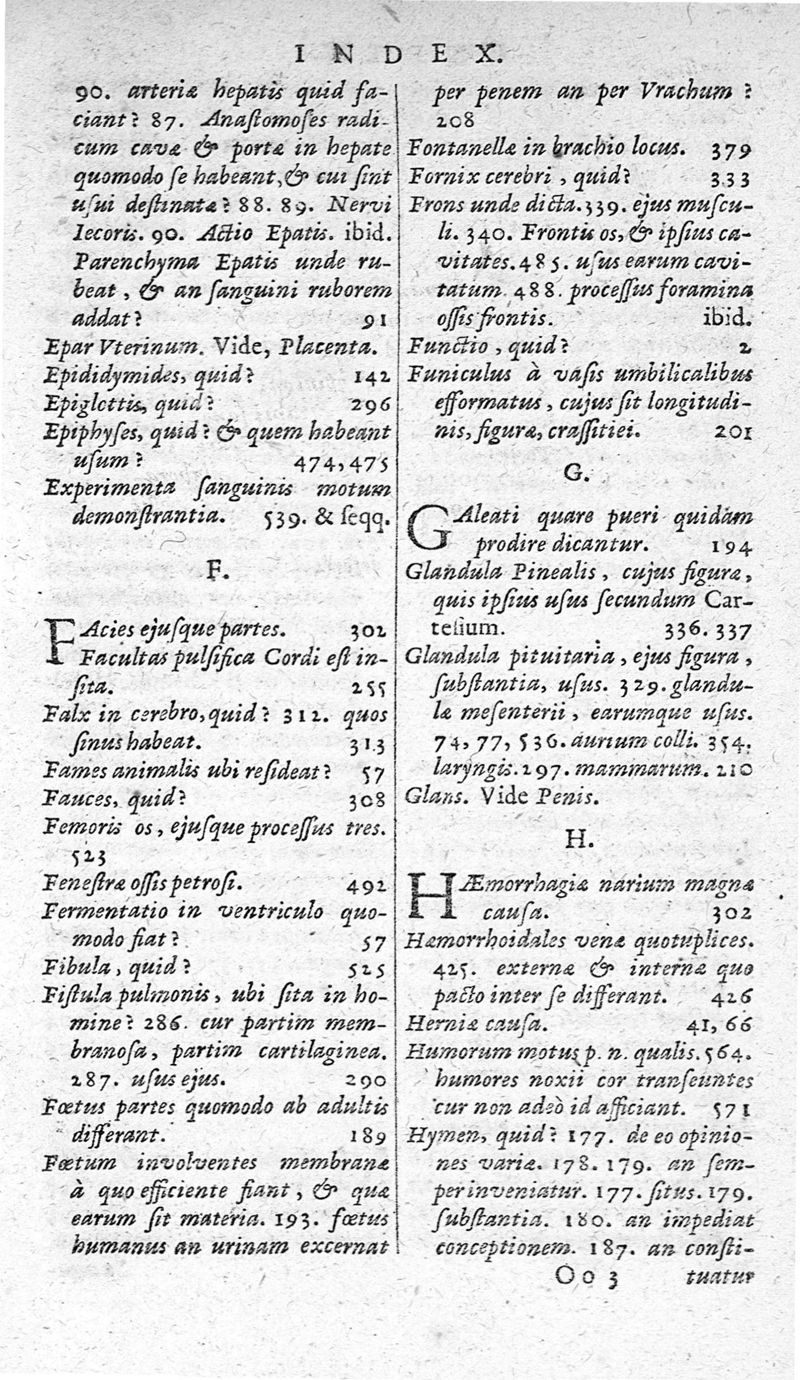 INDEX.
90. arteriæ hepatis quid fa-
ciant? 87. Anaſtomoſes radi-
cum cavæ & portæ in hepate
quomodo ſe habeant, & cui ſint
uſui deſtinatæ? 88. 89. Nervi
Iecoris. 90. Actio Epatis. ibid.
Parenchyma Epatis unde ru-
beat, & an ſanguini ruborem
addat? 91
Epar Vterinum. Vide, Placenta.
Epididymides, quid? 142
Epiglottis, quid? 296
Epiphyſes, quid? & quem habeant
uſum? 474, 475
Experimenta ſanguinis motum
demonſtrantia. 539. & ſeqq.
F.
FAcies ejuſque partes. 302
Facultas pulſifica Cordi eſt in-
ſita. 255
Falx in cerebro, quid? 312. quos
ſinus habeat. 313
Fames animalis ubi reſideat? 57
Fauces, quid? 308
Femoris os, ejuſque proceſſus tres.
523
Feneſtræ oſſis petroſi. 492
Fermentatio in ventriculo quo-
modo fiat? 57
Fibula, quid? 525
Fiſtula pulmonis, ubi ſita in ho-
mine? 286. cur partim mem-
branoſa, partim cartilaginea.
287. uſus ejus. 290
Fœtus partes quomodo ab adultis
differant. 189
Fœtum involventes membranæ
à quo efficiente fiant, & quæ
earum ſit materia. 193. fœtus
humanus an urinam excernat
per penem an per Vrachum?
208
Fontanellæ in brachio locus. 379
Fornix cerebri, quid? 333
Frons unde dicta. 339. ejus muſcu-
li. 340. Frontis os, & ipſius ca-
vitates. 485. uſus earum cavi-
tatum. 488. proceſſus foramina
oſſis frontis. ibid.
Functio, quid? 2
Funiculus à vaſis umbilicalibus
efformatus, cujus ſit longitudi-
nis, figuræ, craſſitiei. 201
G.
GAleati quare pueri quidam
prodire dicantur. 194
Glandula Pinealis, cujus figuræ,
quis ipſius uſus ſecundum Car-
teſium. 336. 337
Glandula pituitaria, ejus figura,
ſubſtantia, uſus. 329. glandu-
læ meſenterii, earumque uſus.
74, 77, 536. aurium colli. 354.
laryngis. 297. mammarum. 210
Glans. Vide Penis.
H.
HÆmorrhagiæ narium magnæ
cauſa. 302
Hæmorrhoidales venæ quotuplices.
425. externæ & internæ quo
pacto inter ſe differant. 426
Herniæ cauſa. 41, 66
Humorum motus p. n. qualis. 564.
humores noxii cor tranſeuntes
cur non adeò id afficiant. 571
Hymen, quid? 177. de eo opinio-
nes variæ. 178. 179. an ſem-
per inveniatur. 177. ſitus. 179.
ſubſtantia. 180. an impediat
conceptionem. 187. an conſti-
Oo 3 tuatur